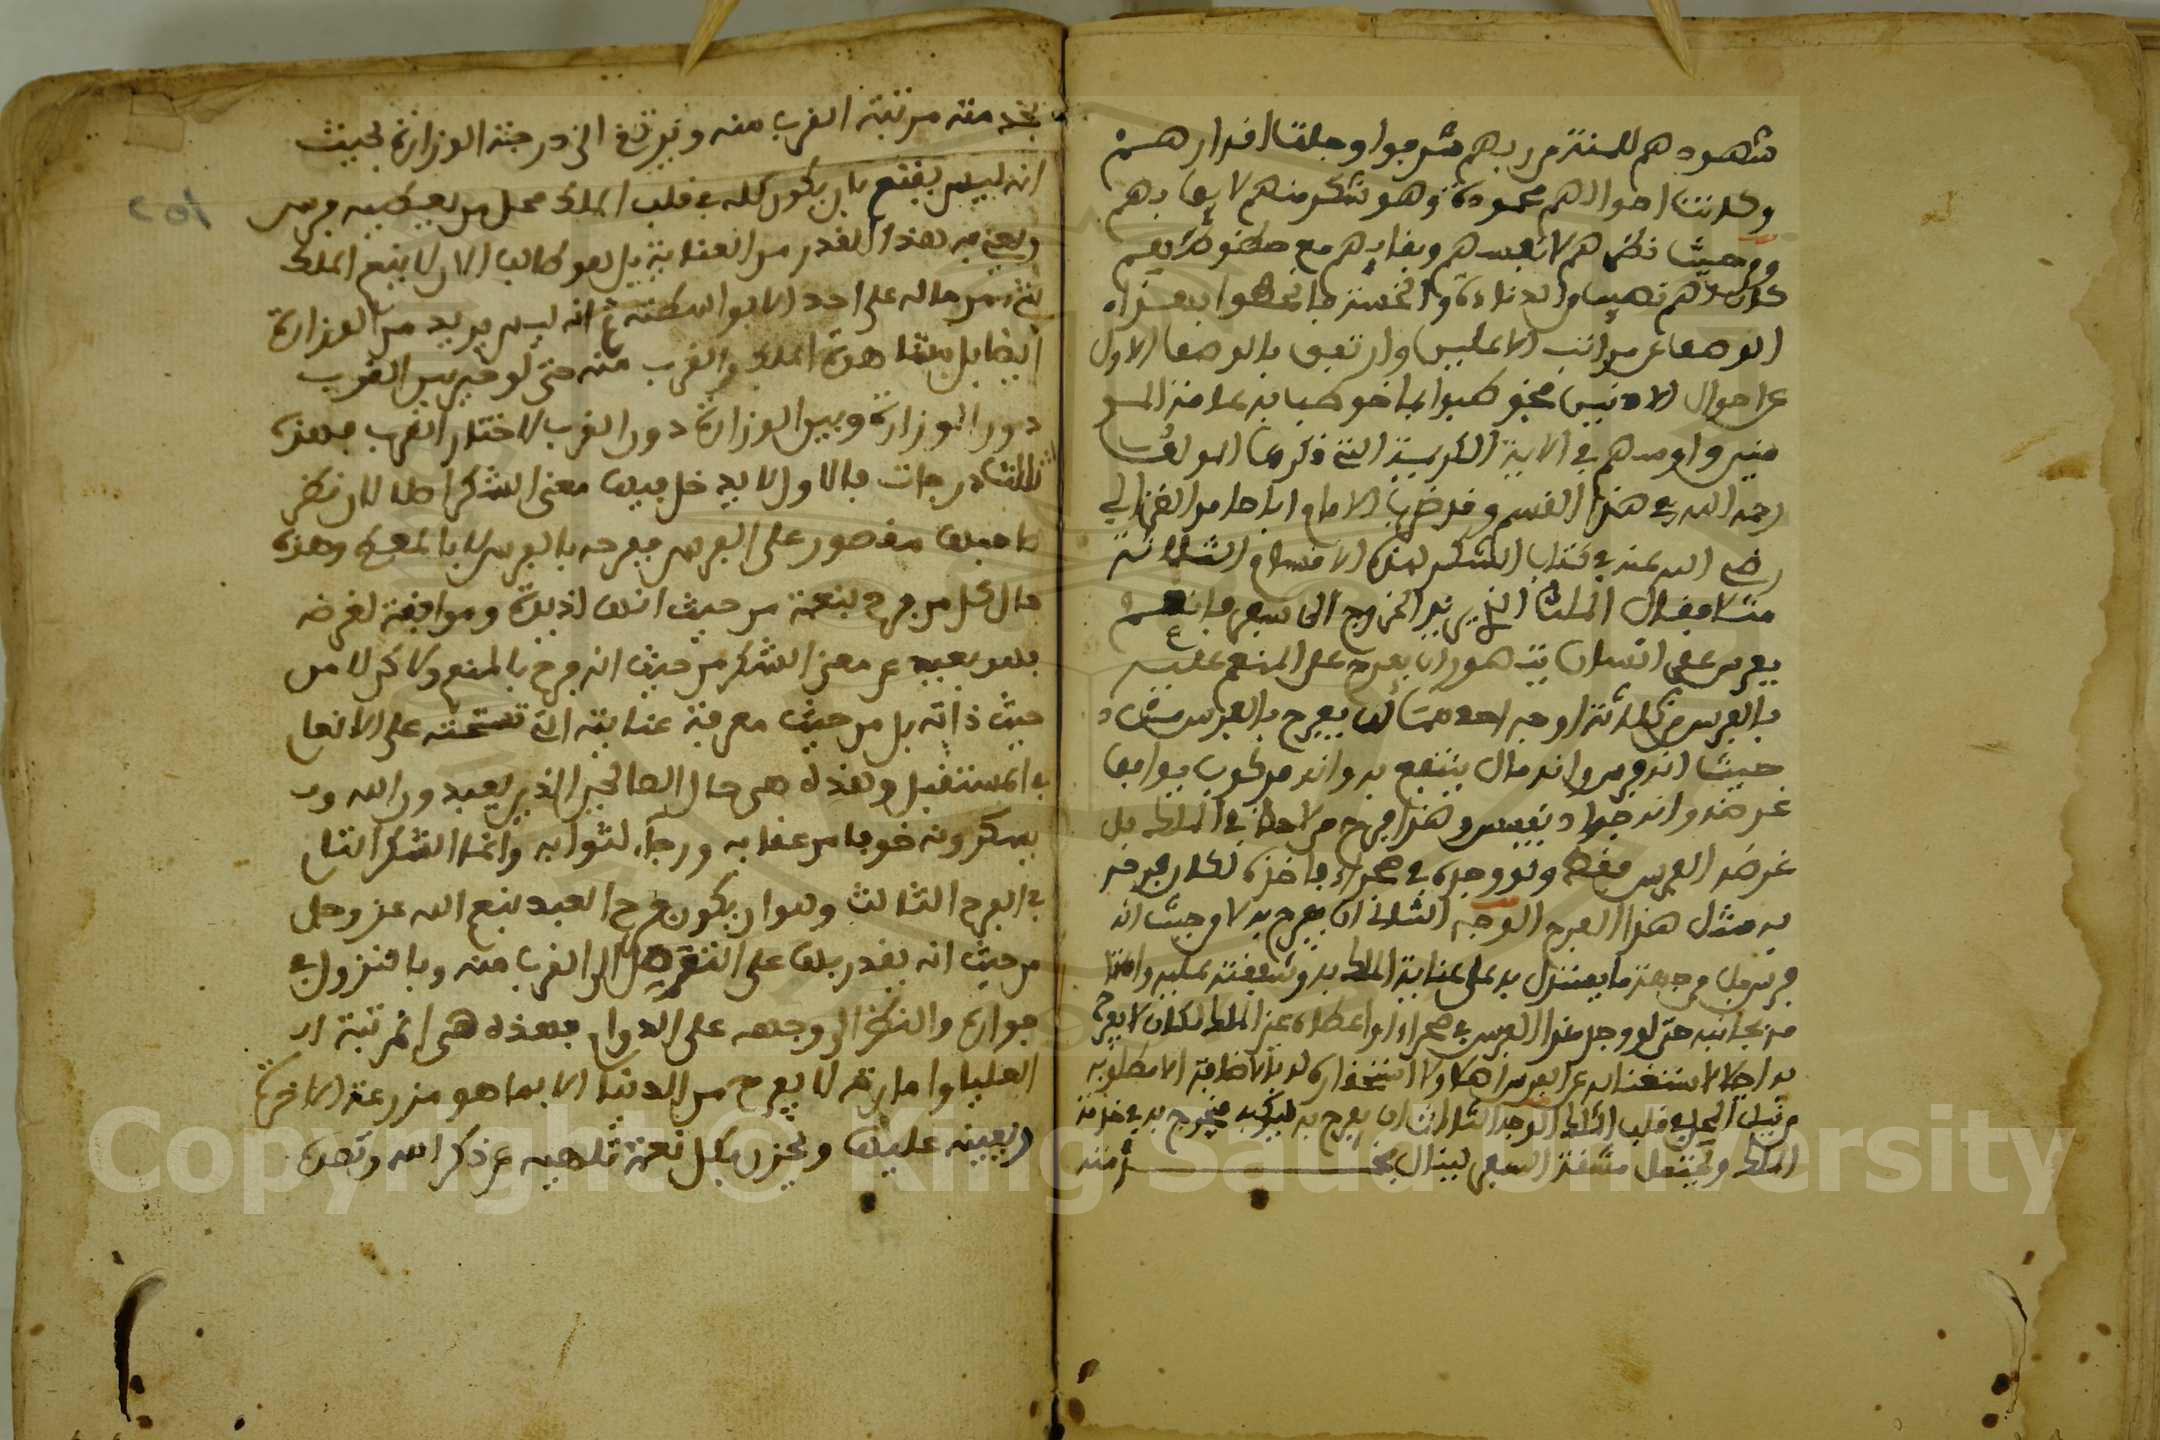 شهودهم للمنة من ربهم شرفوا وجلت اقدارهم
وكانت احوالهم محمودة وهو شكر منهم لايق بهم
ومن حيث نظرهم لانفسهم وبقايهم مع حظوظهم
كان لهم نصيب من الدناءة والخسة فانحطوا بهذا
الوصف عن مراتب الاعليين وارتفعوا بالوصف الاول
عن احوال الادنيين فخوطبوا بما خوطب به عامة المو
منين وامرهم في الاية الكريمة التي ذكرها المولف
رحمه الله في هذا القسم وقد ضرب الامام ابا حامد الغزالي
رضي الله عنه في كتاب الشكر لهذه الاقسام الثلاثة
مثلا فقال الملك الذي يريد الخروج الى سفر فانعم
بفرس على انسان يتصور ان يفرح المنعم عليه
بالفرس من ثلاثة اوجه احدها ان يفرح بالفرس من
حيث انه فرس وانه مال ينتفع به وانه مركوب يوافق
غرضه وانه جواد نفيس وهذا فرح من لا حظ له في الملك بل
غرضه الفرس فقط ولو وجده في صحراء فاخذه لكان فرحه
به مثل هذا الفرح الوجه الثاني ان يفرح به لا من حيث انه
فرس بل من جهة ما يستدل به على عناية الملك به وشفقته عليه واهتما
مه بجانبه حتى لو وجد هذا الفرس في صحراء او اعطاه غير الملك لكان لا يفرح
به اصلا لاستغنايه عن الفرس اصلا ولا استحقاره له بالاضافة الى مطلوبه
من نيل المحل في قلب الملك الوجه الثالث ان يفرح به ليركبه فيخرج به في خدمة
الملك ويحتمل مشقة السفر لينال بخدمته
بخدمته مرتبة القرب منه ويرتفع الى درجة الوزارة بحيث
انه ليس يقنع بان يكون محله في قلب الملك محل من يعطيه فرس
ويعتني به هذا القدر من العناية بل هو طالب الا ينعم الملك
بشئ من ماله على احد الا بواسطته ثم انه ليس يريد من الوزارة
ايضا بل مشاهدة الملك والقرب منه حتى لو خير بين القرب
دون الوزارة وبين الوزارة دون القرب لاختار القرب فهذه
ثلاث درجات فالاولى لا يدخل فيها معنى الشكر اصلا لان نظر
صاحبها مقصور على الفرس ففرحه بالفرس لا بالمعطي وهذه
حال كل من فرح بنعمة من حيث انها لذيذة وموافقة لغرضه
فهو بعيد عن معنى الشكر من حيث انه فرح بالمنعم ولاكن لا من
حيث ذاته بل من حيث معرفة عنايته التي تستحثه على الانعام
في المستقبل وهذه هي حال الصالحين الذين يعبدون الله و
يشكرونه خوفا من عقابه ورجاء لثوابه وانما الشكر التام
في الفرح الثالث وهو ان يكون فرح العبد بنعم الله عز وجل
من حيث انه يقدر بها على التوصل الى القرب منه وبالنزول في
جواره والنظر الى وجهه على الدوام فهذه هي المرتبة
العليا وامارته لا يفرح من الدنيا الا بما هو مزرعة الاخرة
ويعينه عليها ويحزن بكل نعمة تلهيه عن ذكر الله وتصده